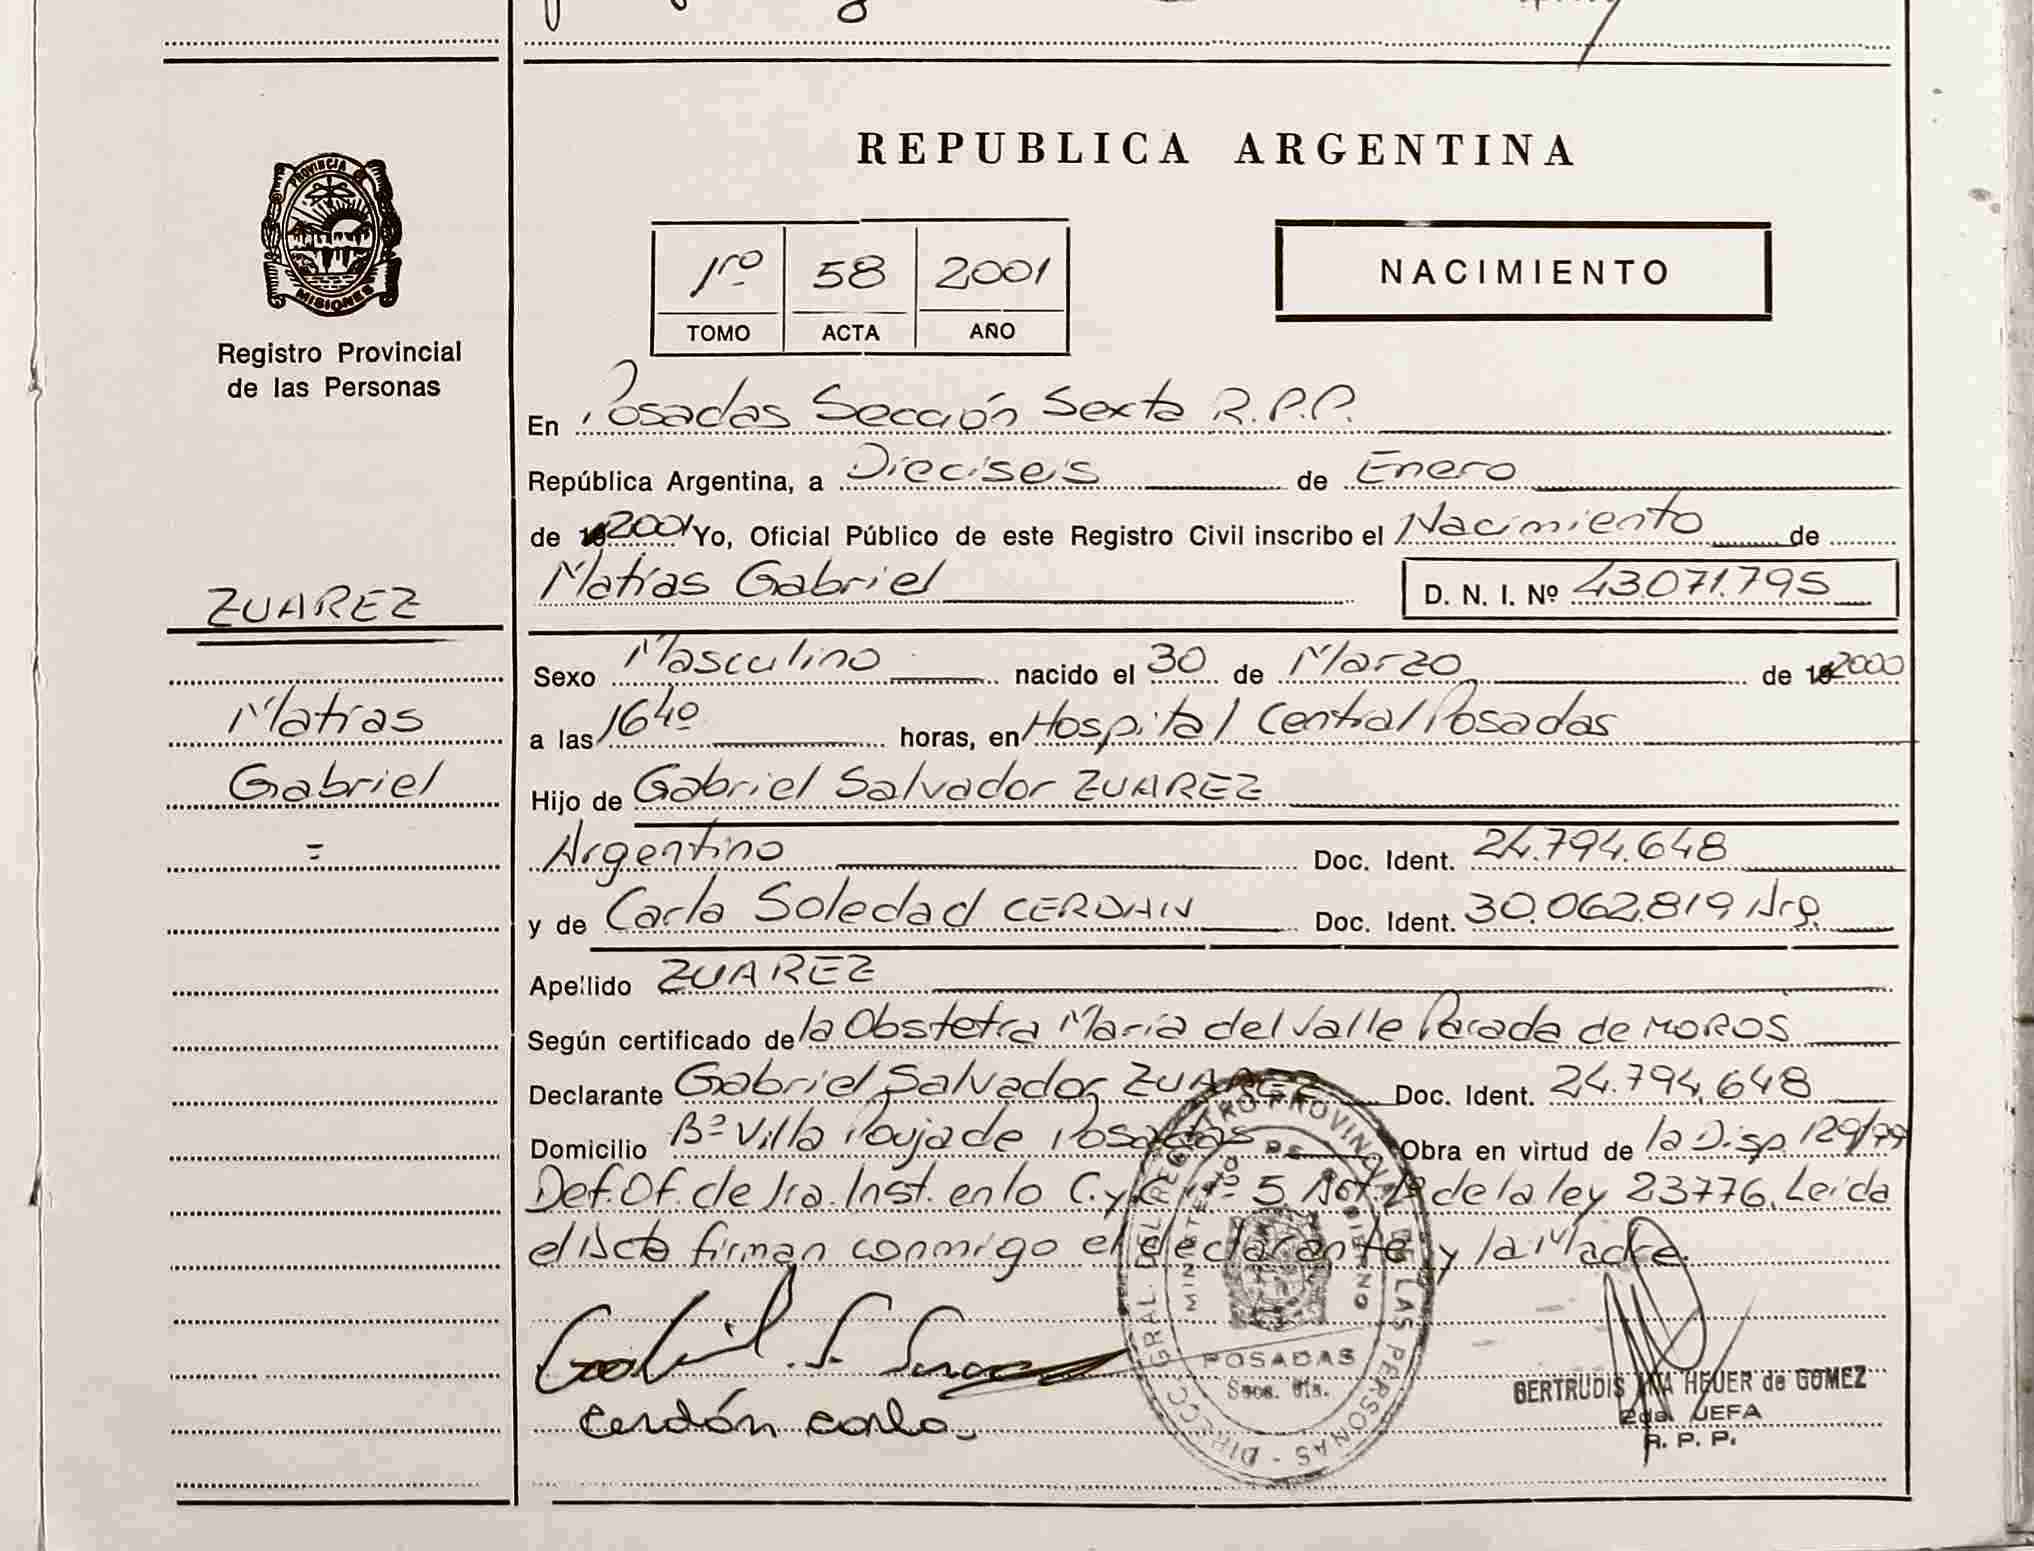 REPUBLICA ARGENTINA
PROVINCIA DE
MISIONES
Registro Provincial
de las Personas
1ro 58 2001
TOMO ACTA AÑO
NACIMIENTO
En Posadas Sección Sexta R.P.P.
República Argentina, a Dieciseis de Enero
de 2001 Yo, Oficial Público de este Registro Civil inscribo el Nacimiento de
Matías Gabriel D. N. I. Nº 43.071.795
ZUAREZ
Matías
Gabriel
=
Sexo Masculino nacido el 30 de Marzo de 2000
a las 16 40 horas, en Hospital Central Posadas
Hijo de Gabriel Salvador ZUAREZ
Argentino Doc. Ident. 24.794.648
y de Carla Soledad CERDAN Doc. Ident. 30.062.819 Arg.
Apellido ZUAREZ
Según certificado de la Obstetra María del Valle Parada de MOROS
Declarante Gabriel Salvador ZUAREZ Doc. Ident. 24.794.648
Domicilio Bº Villa Poujade Posadas Obra en virtud de la Disp. 129/99
Def. Of. de 1ra. Inst. en lo C. y C. Nº 5 Art. 1º de la ley 23776. Leída
el Acta firman conmigo el declarante y la Madre.
Gabriel S.
Cerdán Carla
DIRECC. GRAL. DEL REGISTRO PROVINCIAL DE LAS PERSONAS -
MINISTERIO DE GOBIERNO
POSADAS
GERTRUDIS HEUER de GOMEZ
2da. JEFA
R. P. P.